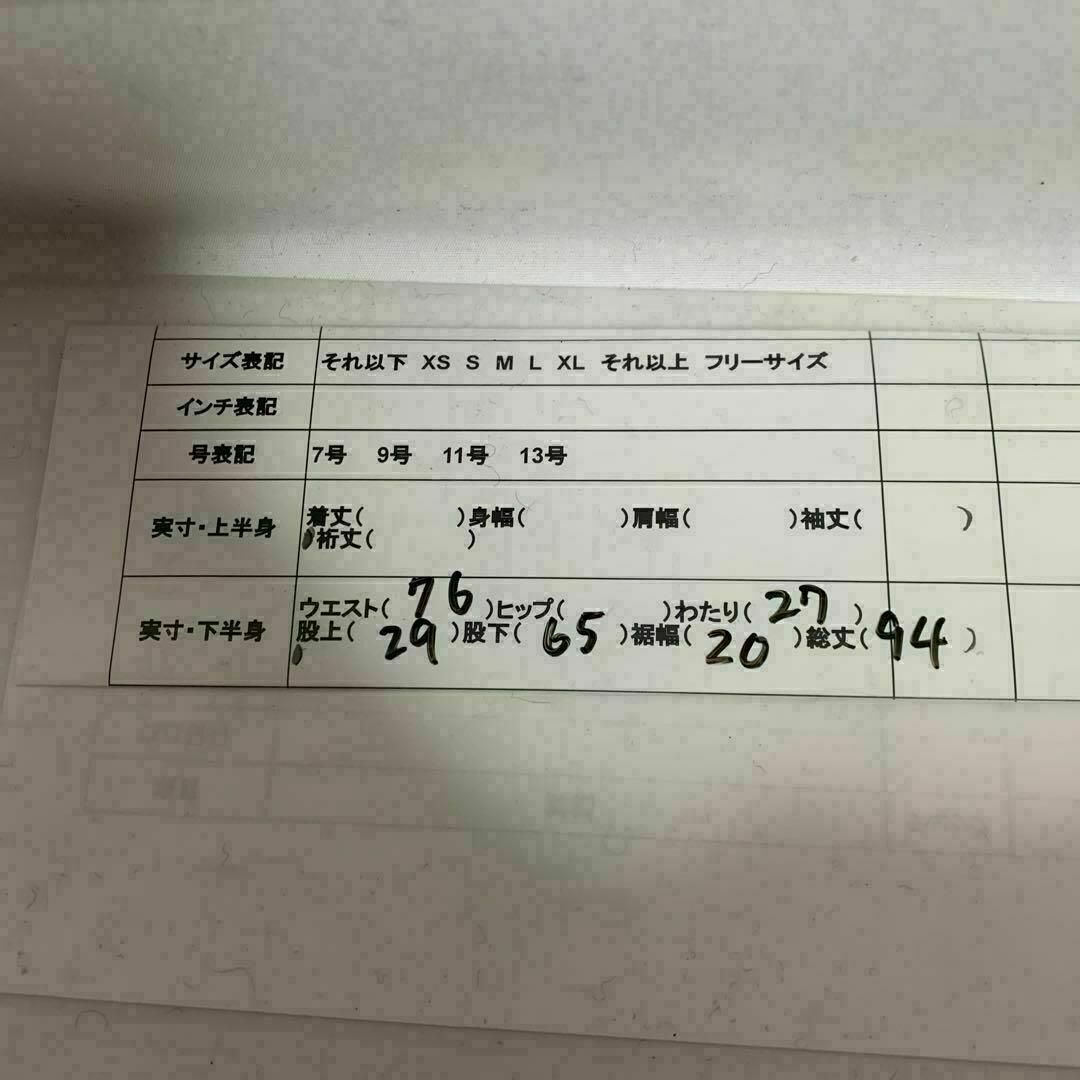 サイズ表記 それ以下 XS S M L XL それ以上 フリーサイズ
インチ表記
号表記 7号 9号 11号 13号
実寸・上半身 着丈( )身幅( )肩幅( )袖丈( )
裄丈( )
実寸・下半身 ウエスト( 76 )ヒップ( )わたり( 27 )
股上( 29 )股下( 65 )裾幅( 20 )総丈( 94 )